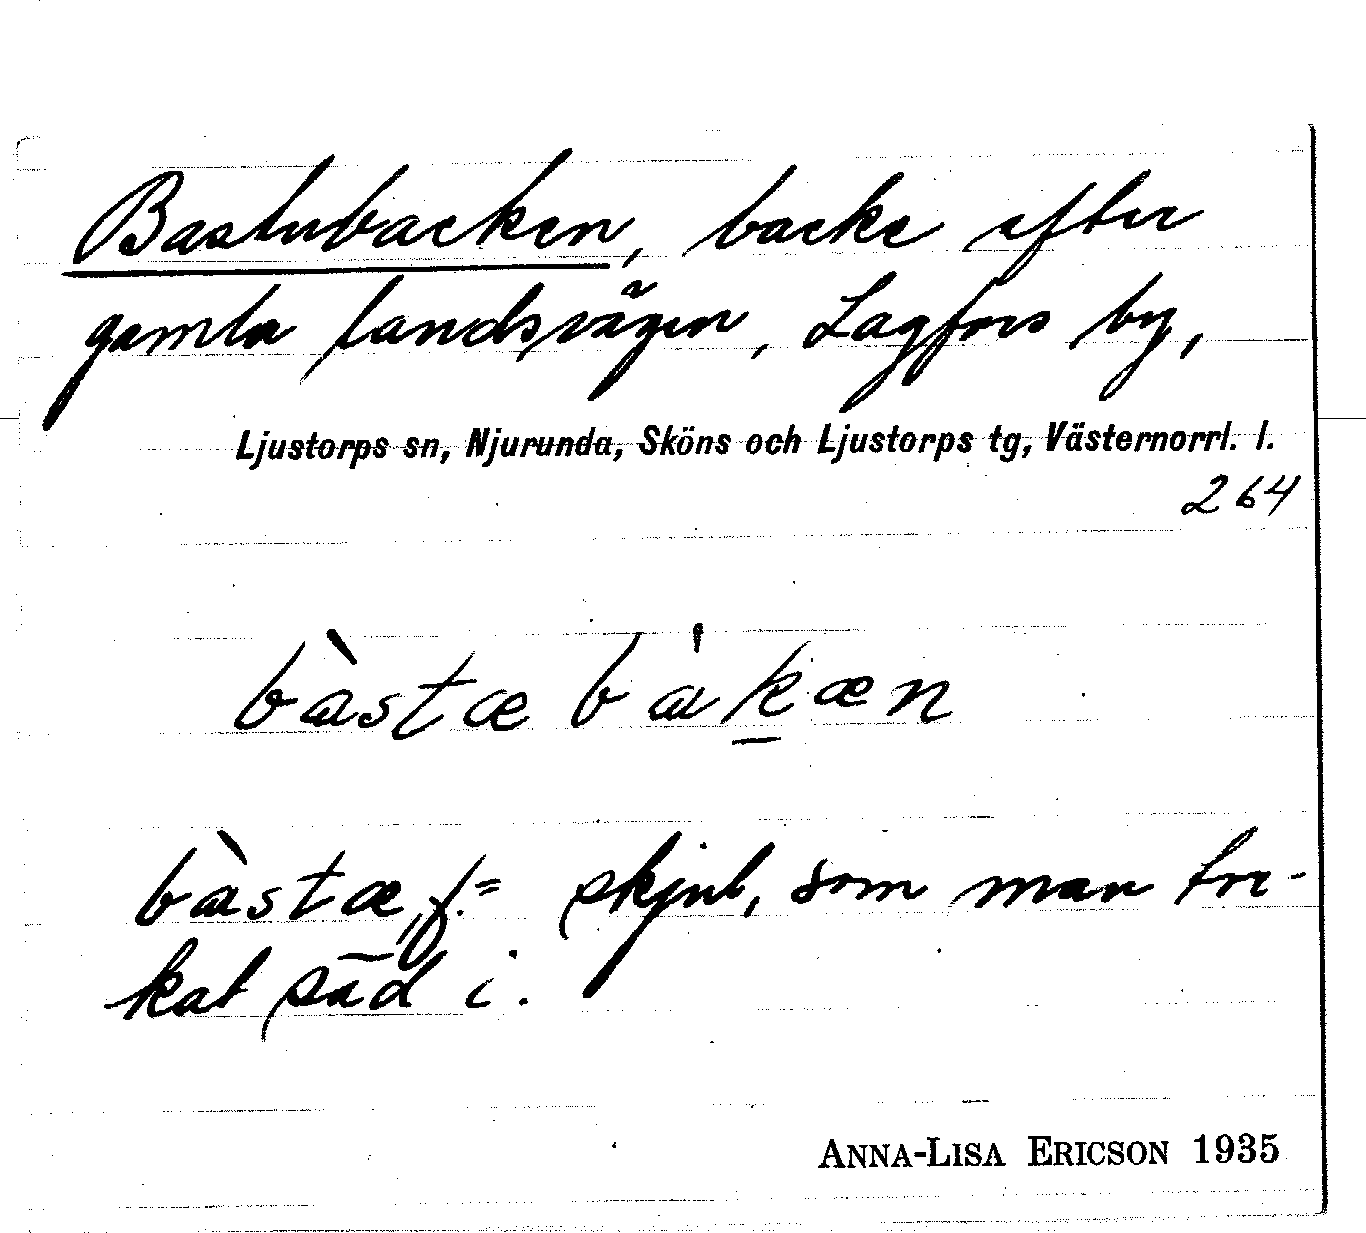 Bastubacken, backe efter
gamla landsvägen, Lagfors by,
Ljustorps sn, Njurunda, Sköns och Ljustorps tg, Västernorrl. l.
264
bàstæ bàkæn
bàstæ, f. = skjul, som man tor-
kat säd i.
ANNA-LISA ERICSON 1935